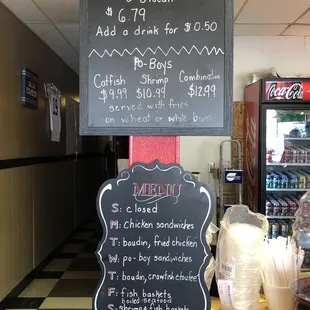 $6.79
Add a drink for $0.50
Po-Boys
Catfish Shrimp Combination
$9.99 $10.99 $12.99
served with fries
on wheat or white buns
Coca-Cola
S: closed
M: Chicken sandwiches
T: boudin, fried chicken
W: po-boy sandwiches
T: boudin, crawfish etoufee
F: fish baskets
boiled seafood
S: shrimp & fish baskets